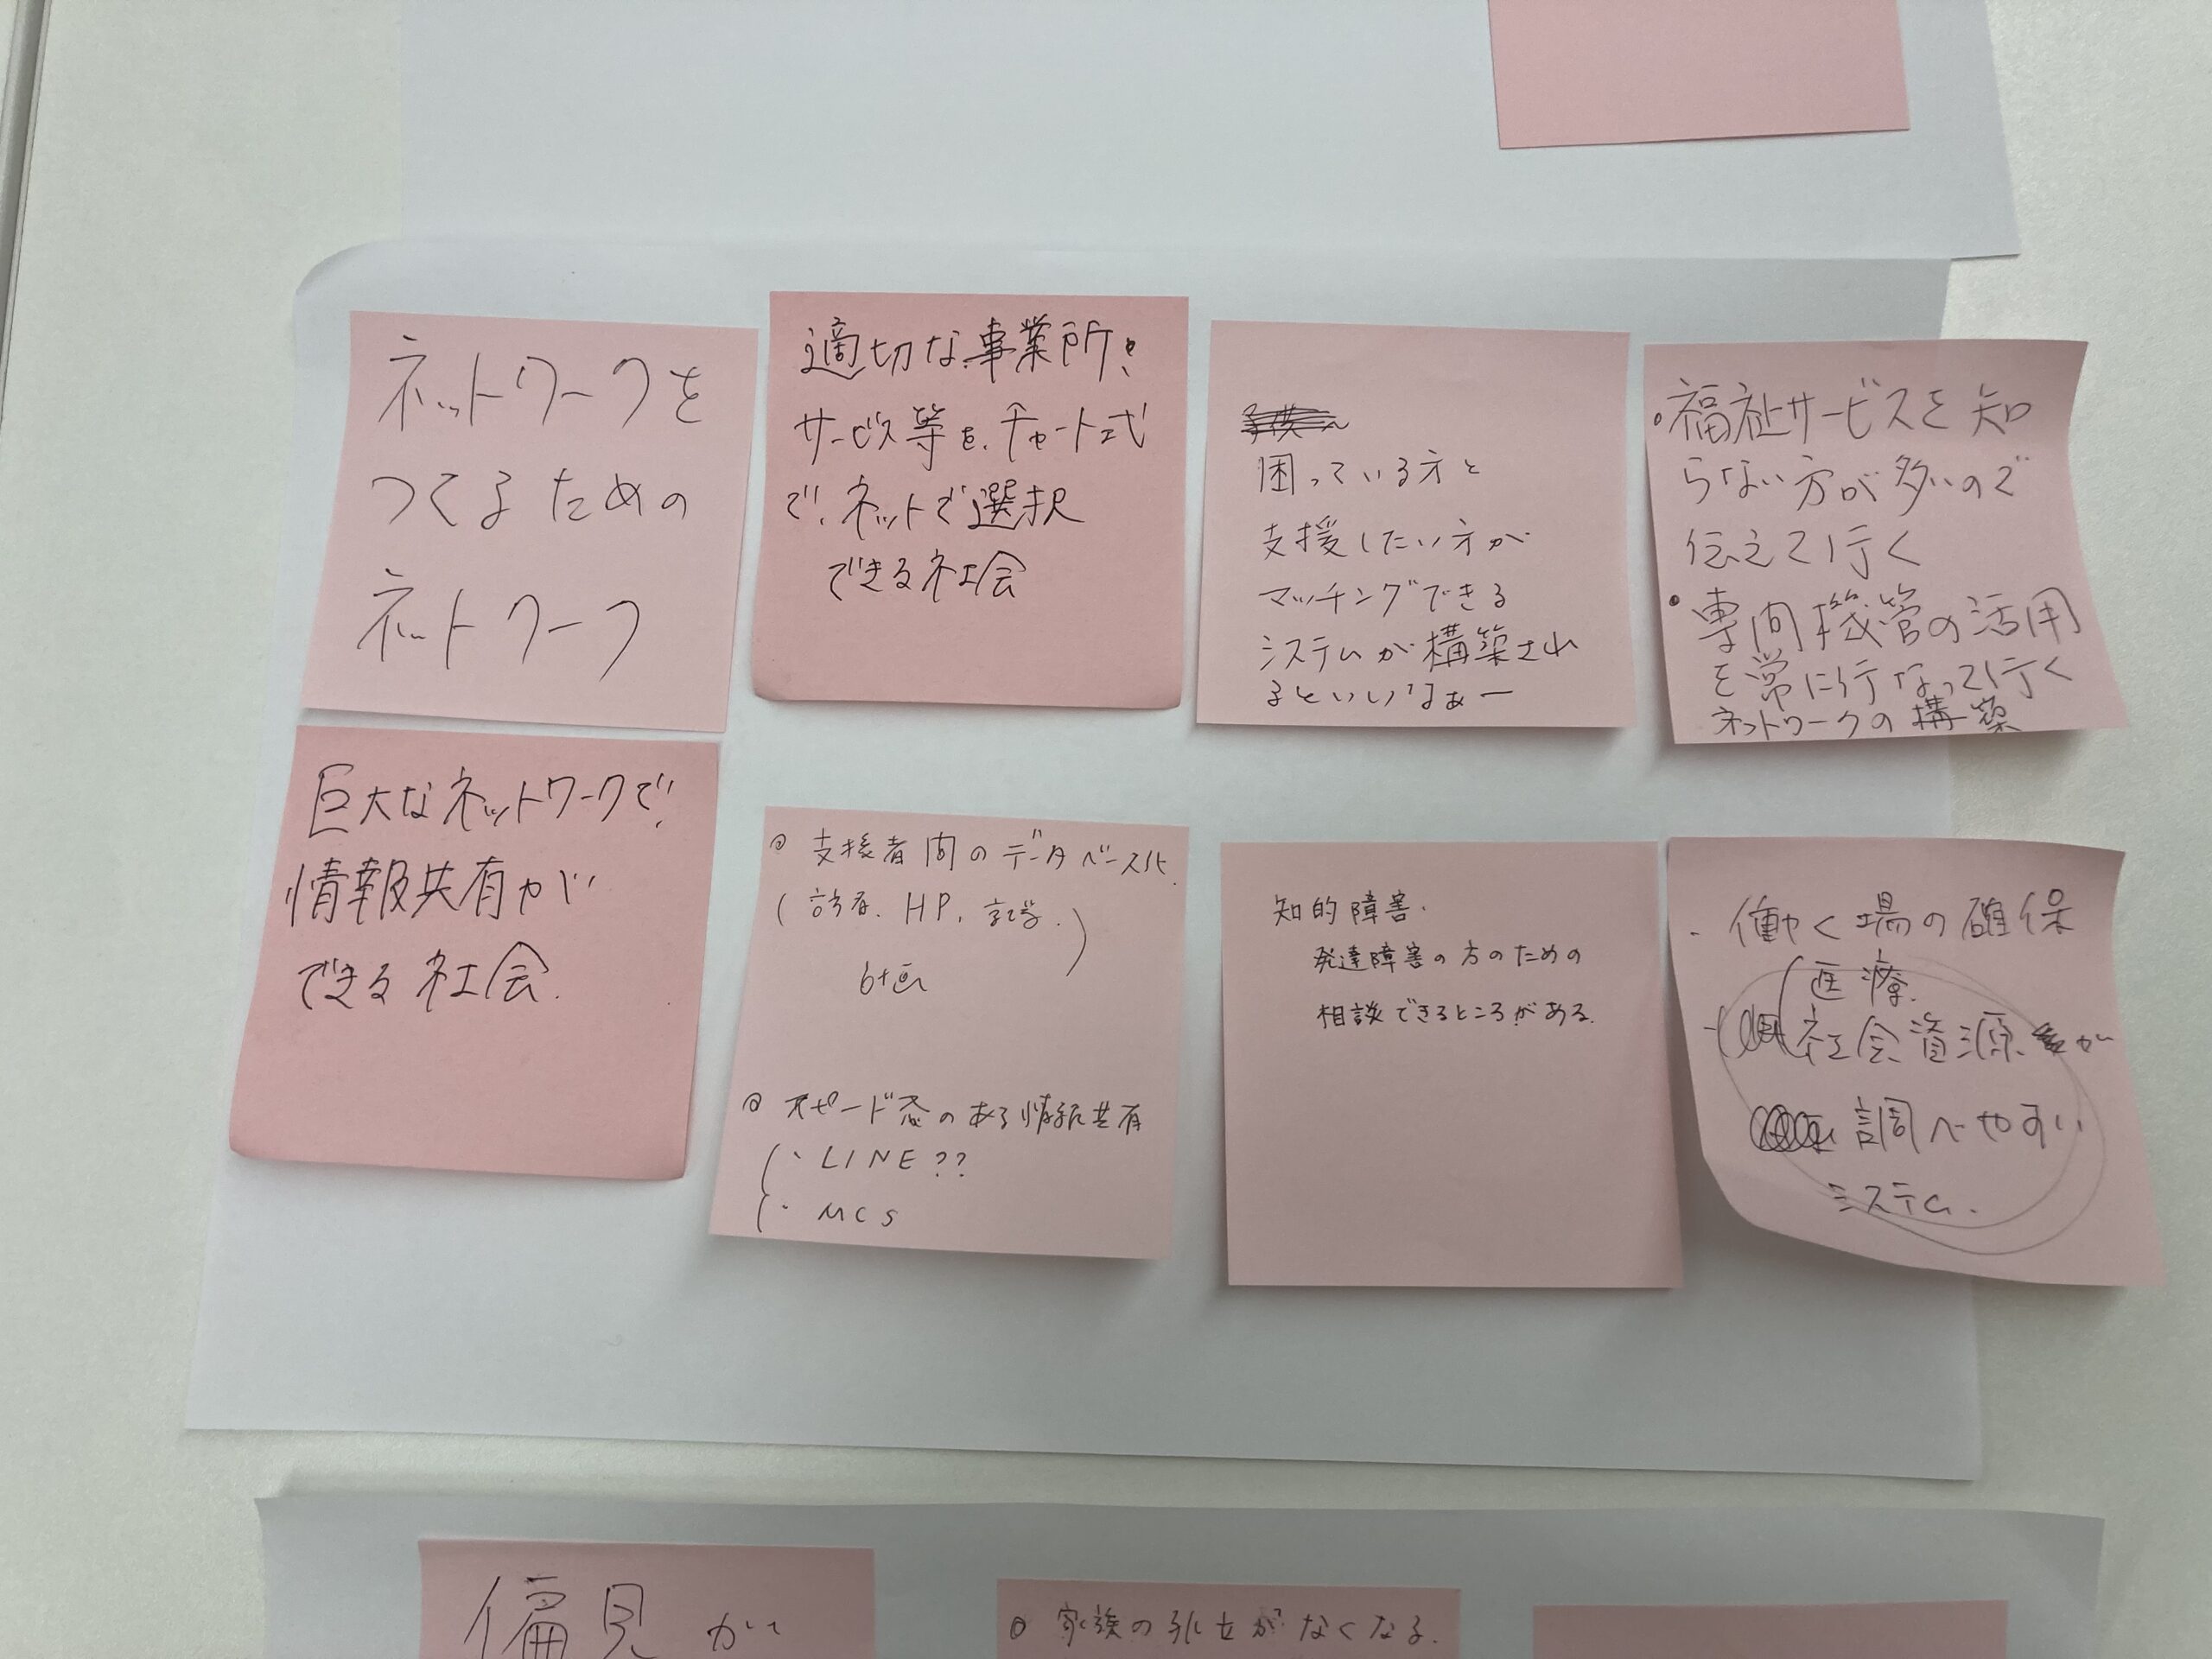 ネットワークを
つくるための
ネットワーク
適切な事業所や
サービス等を、チャート式
で、ネットで選択
できる社会
困っている方と
支援したい方が
マッチングできる
システムが構築され
るといいなぁー
・福祉サービスを知
らない方が多いので
伝えて行く
・専門機管の活用
を常に行なって行く
ネットワークの構築
巨大なネットワークで
情報共有が
できる社会.
◎ 支援者間のデータベース化
HP.
◎ スピード感のある情報共有
・LINE??
・MCS
知的障害・
発達障害の方のための
相談できるところがある.
・働く場の確保
医療.
社会資源が
調べやすい
システム.
偏見が
◎ 家族の孤立がなくなる.